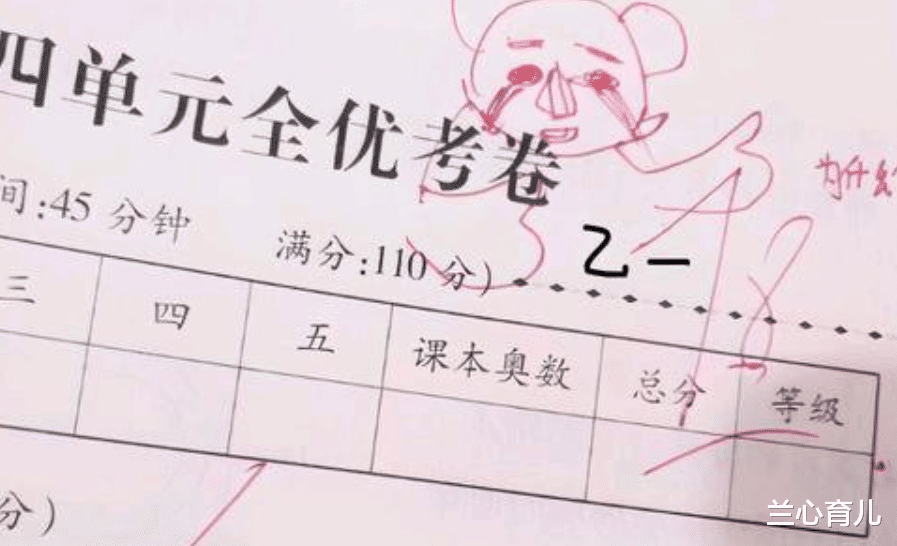 四单元全优考卷
为什么
间:45 分钟 满分:110 分)
乙一
48
三 四 五 课本奥数 总分 等级
分)
兰心育儿